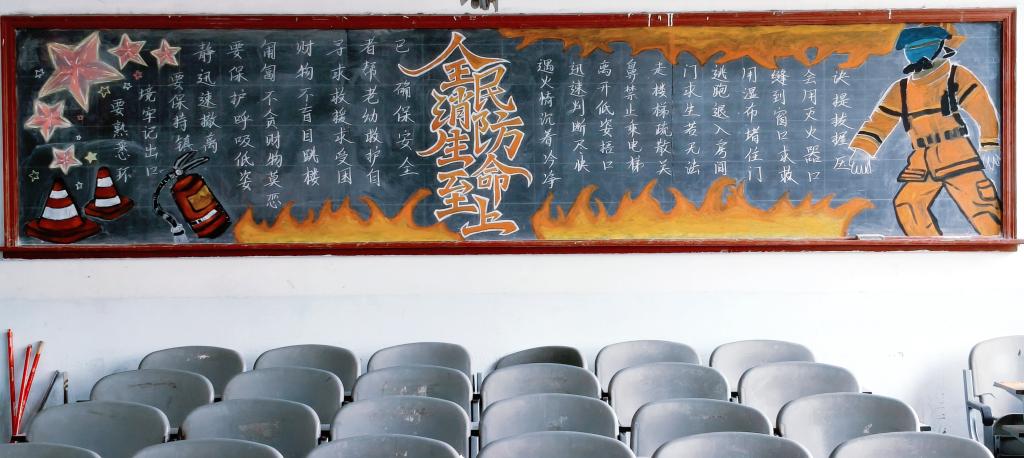 要熟悉环
境牢记出口
要保持镇
静迅速撤离
要保护呼吸低姿
匍匐不贪财物莫恋
财物不盲目跳楼
寻求救援求受困
者帮老幼救护自
己确保安全
全民
消防
生命
至上
遇火情沉着冷净
迅速判断尽脱
离开低姿捂口
鼻禁止乘电梯
走楼梯疏散关
门求生若无法
逃跑退入房间
用湿布堵住门
缝到窗口求救
会用灭火器口
诀提拔握压